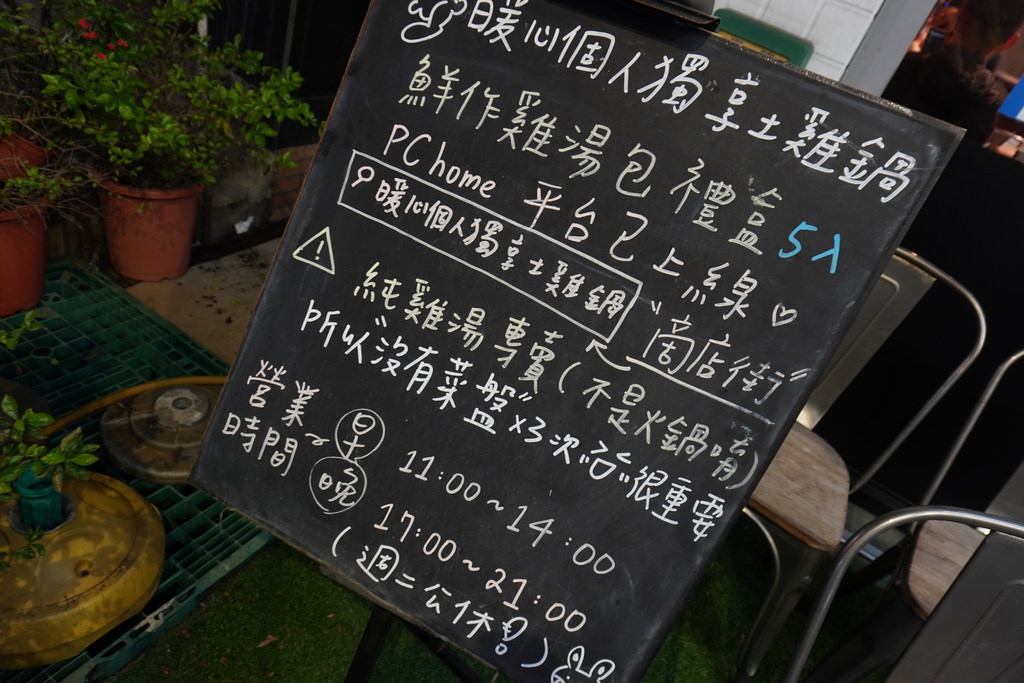 暖心個人獨享土雞鍋
鮮作雞湯包禮盒 5入
PChome 平台已上線♡
暖心個人獨享土雞鍋 "商店街"
⚠ 純雞湯專賣(不是火鍋唷)
所以"沒有菜盤"x3次"很重要
營業時間~
早 11:00~14:00
晚 17:00~21:00
(週二公休!)